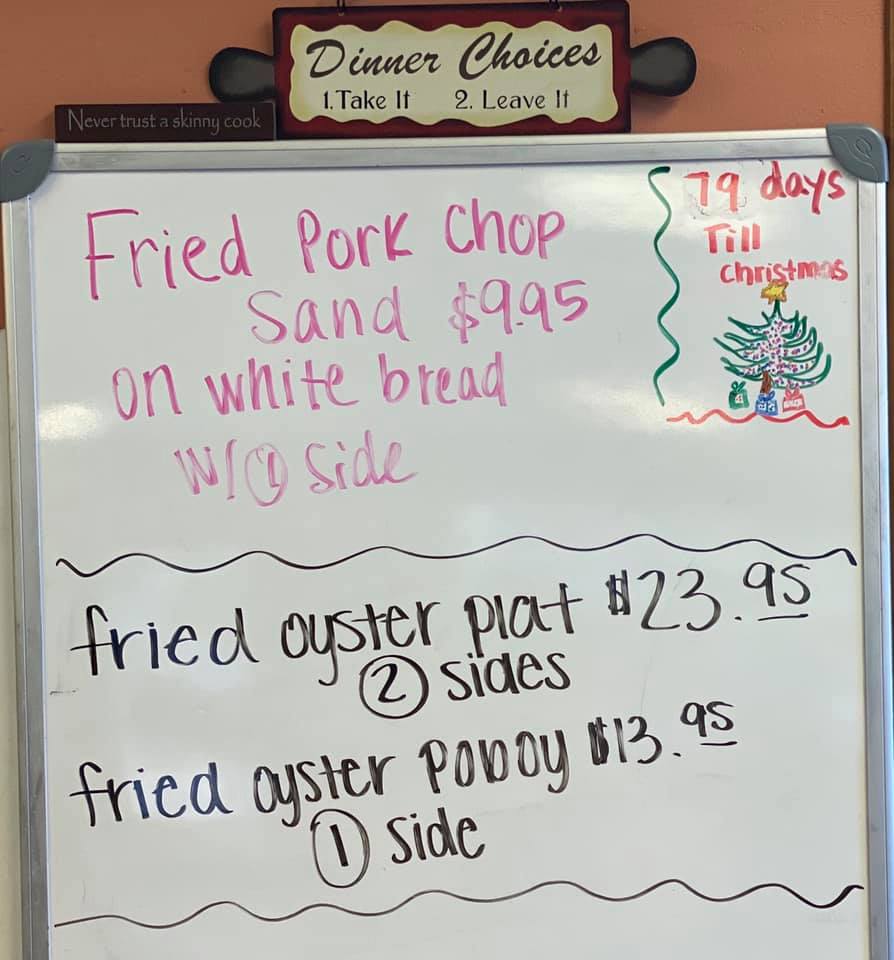 Dinner Choices
1. Take It 2. Leave It
Never trust a skinny cook
79 days
Till
christmas
Fried Pork Chop
Sand $9.95
on white bread
W/① Side
fried oyster plat $23.95
② sides
fried oyster poboy $13.95
① side